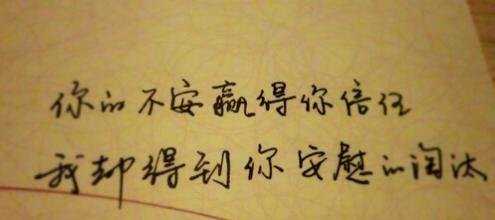 你的不安赢得你信任
我却得到你安慰的淘汰